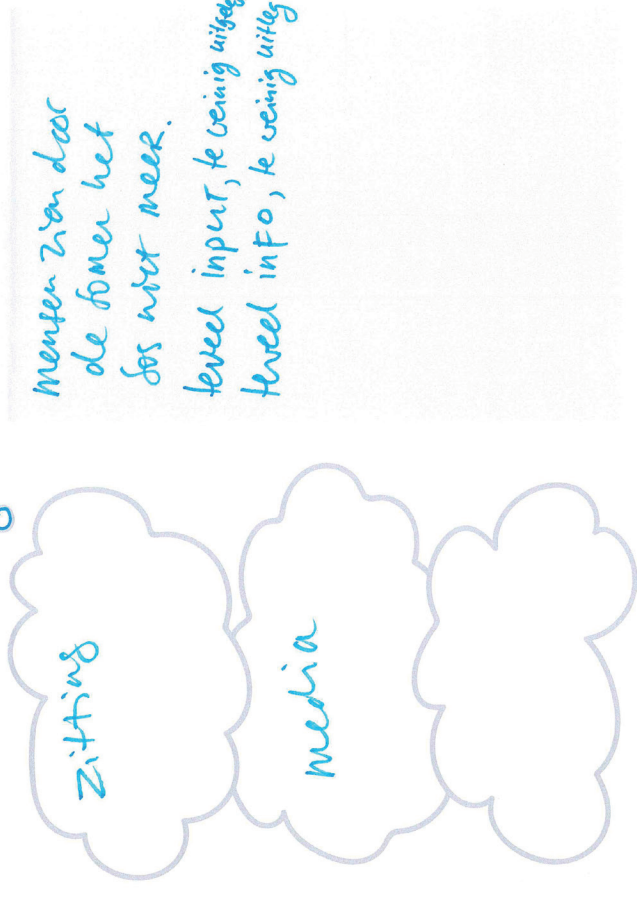 zitting
mensen zien door
de bomen het
bos niet meer.
media
teveel input, te weinig uitleg
teveel info, te weinig uitleg